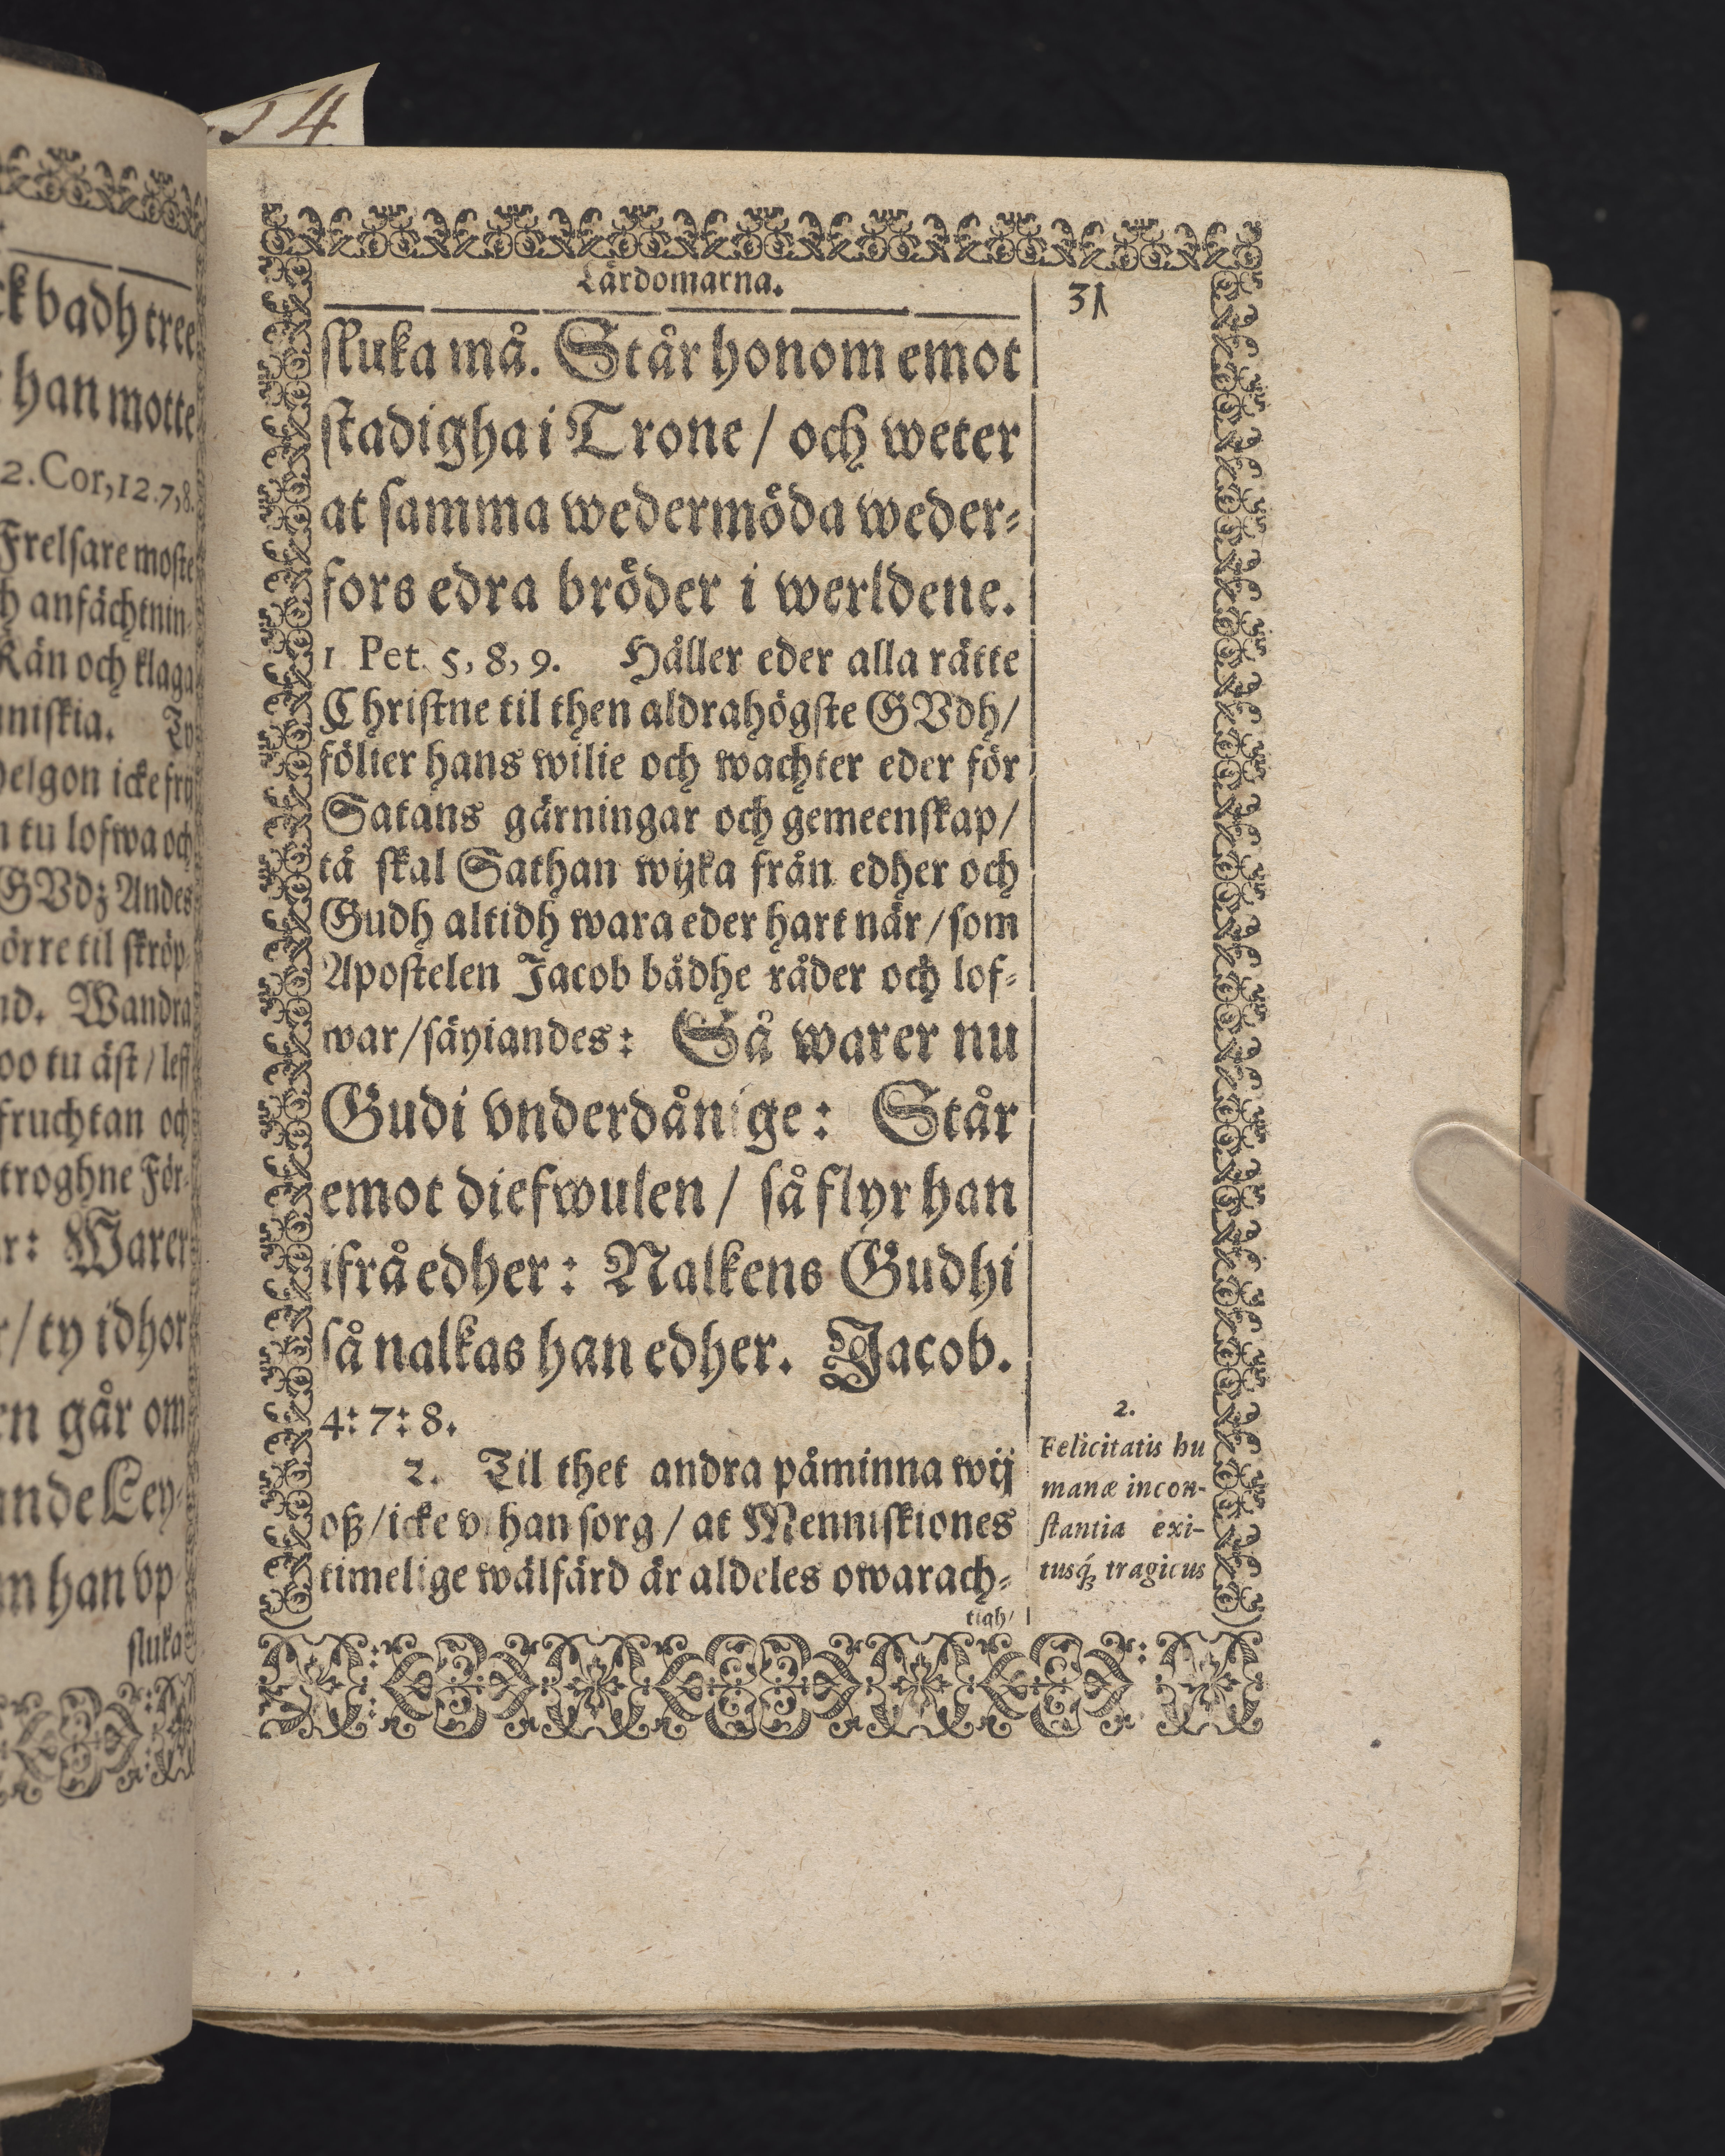 54
ck badh tree
han motte
2. Cor, 12. 7, 8.
Frelsare moste
h anfächtnin-
Kän och klaga
niskia. Ty
helgon icke frij
n tu lofwa och
GVdz Andes
örre til skröp-
nd. Wandra
oo tu äst / less
fruchtan och
troghne För-
r: Warer
r / ty idhor
en går om
ande Ley-
m han vp
sluka
Lärdomarna.
31
sluka må. Står honom emot
stadigha i Trone / och weter
at samma wedermöda weder-
fors edra bröder i werldene.
1 Pet. 5, 8, 9. Håller eder alla rätte
Christne til then aldrahögste GVdh /
fölier hans wilie och wachter eder för
Satans gärningar och gemeenskap /
tå skal Sathan wijka från edher och
Gudh altidh wara eder hart när / som
Apostelen Jacob bådhe råder och lof-
war / säyiandes: Så warer nu
Gudi vnderdånige: Står
emot diefwulen / så flyr han
ifrå edher: Nalkens Gudhi
så nalkas han edher. Jacob.
4: 7: 8.
2. Til thet andra påminna wij
oß / icke v han sorg / at Menniskiones
timelige wälfärd är aldeles owarach-
tigh /
2.
Felicitatis hu
manæ incon-
stantia exi-
tusq́; tragicus